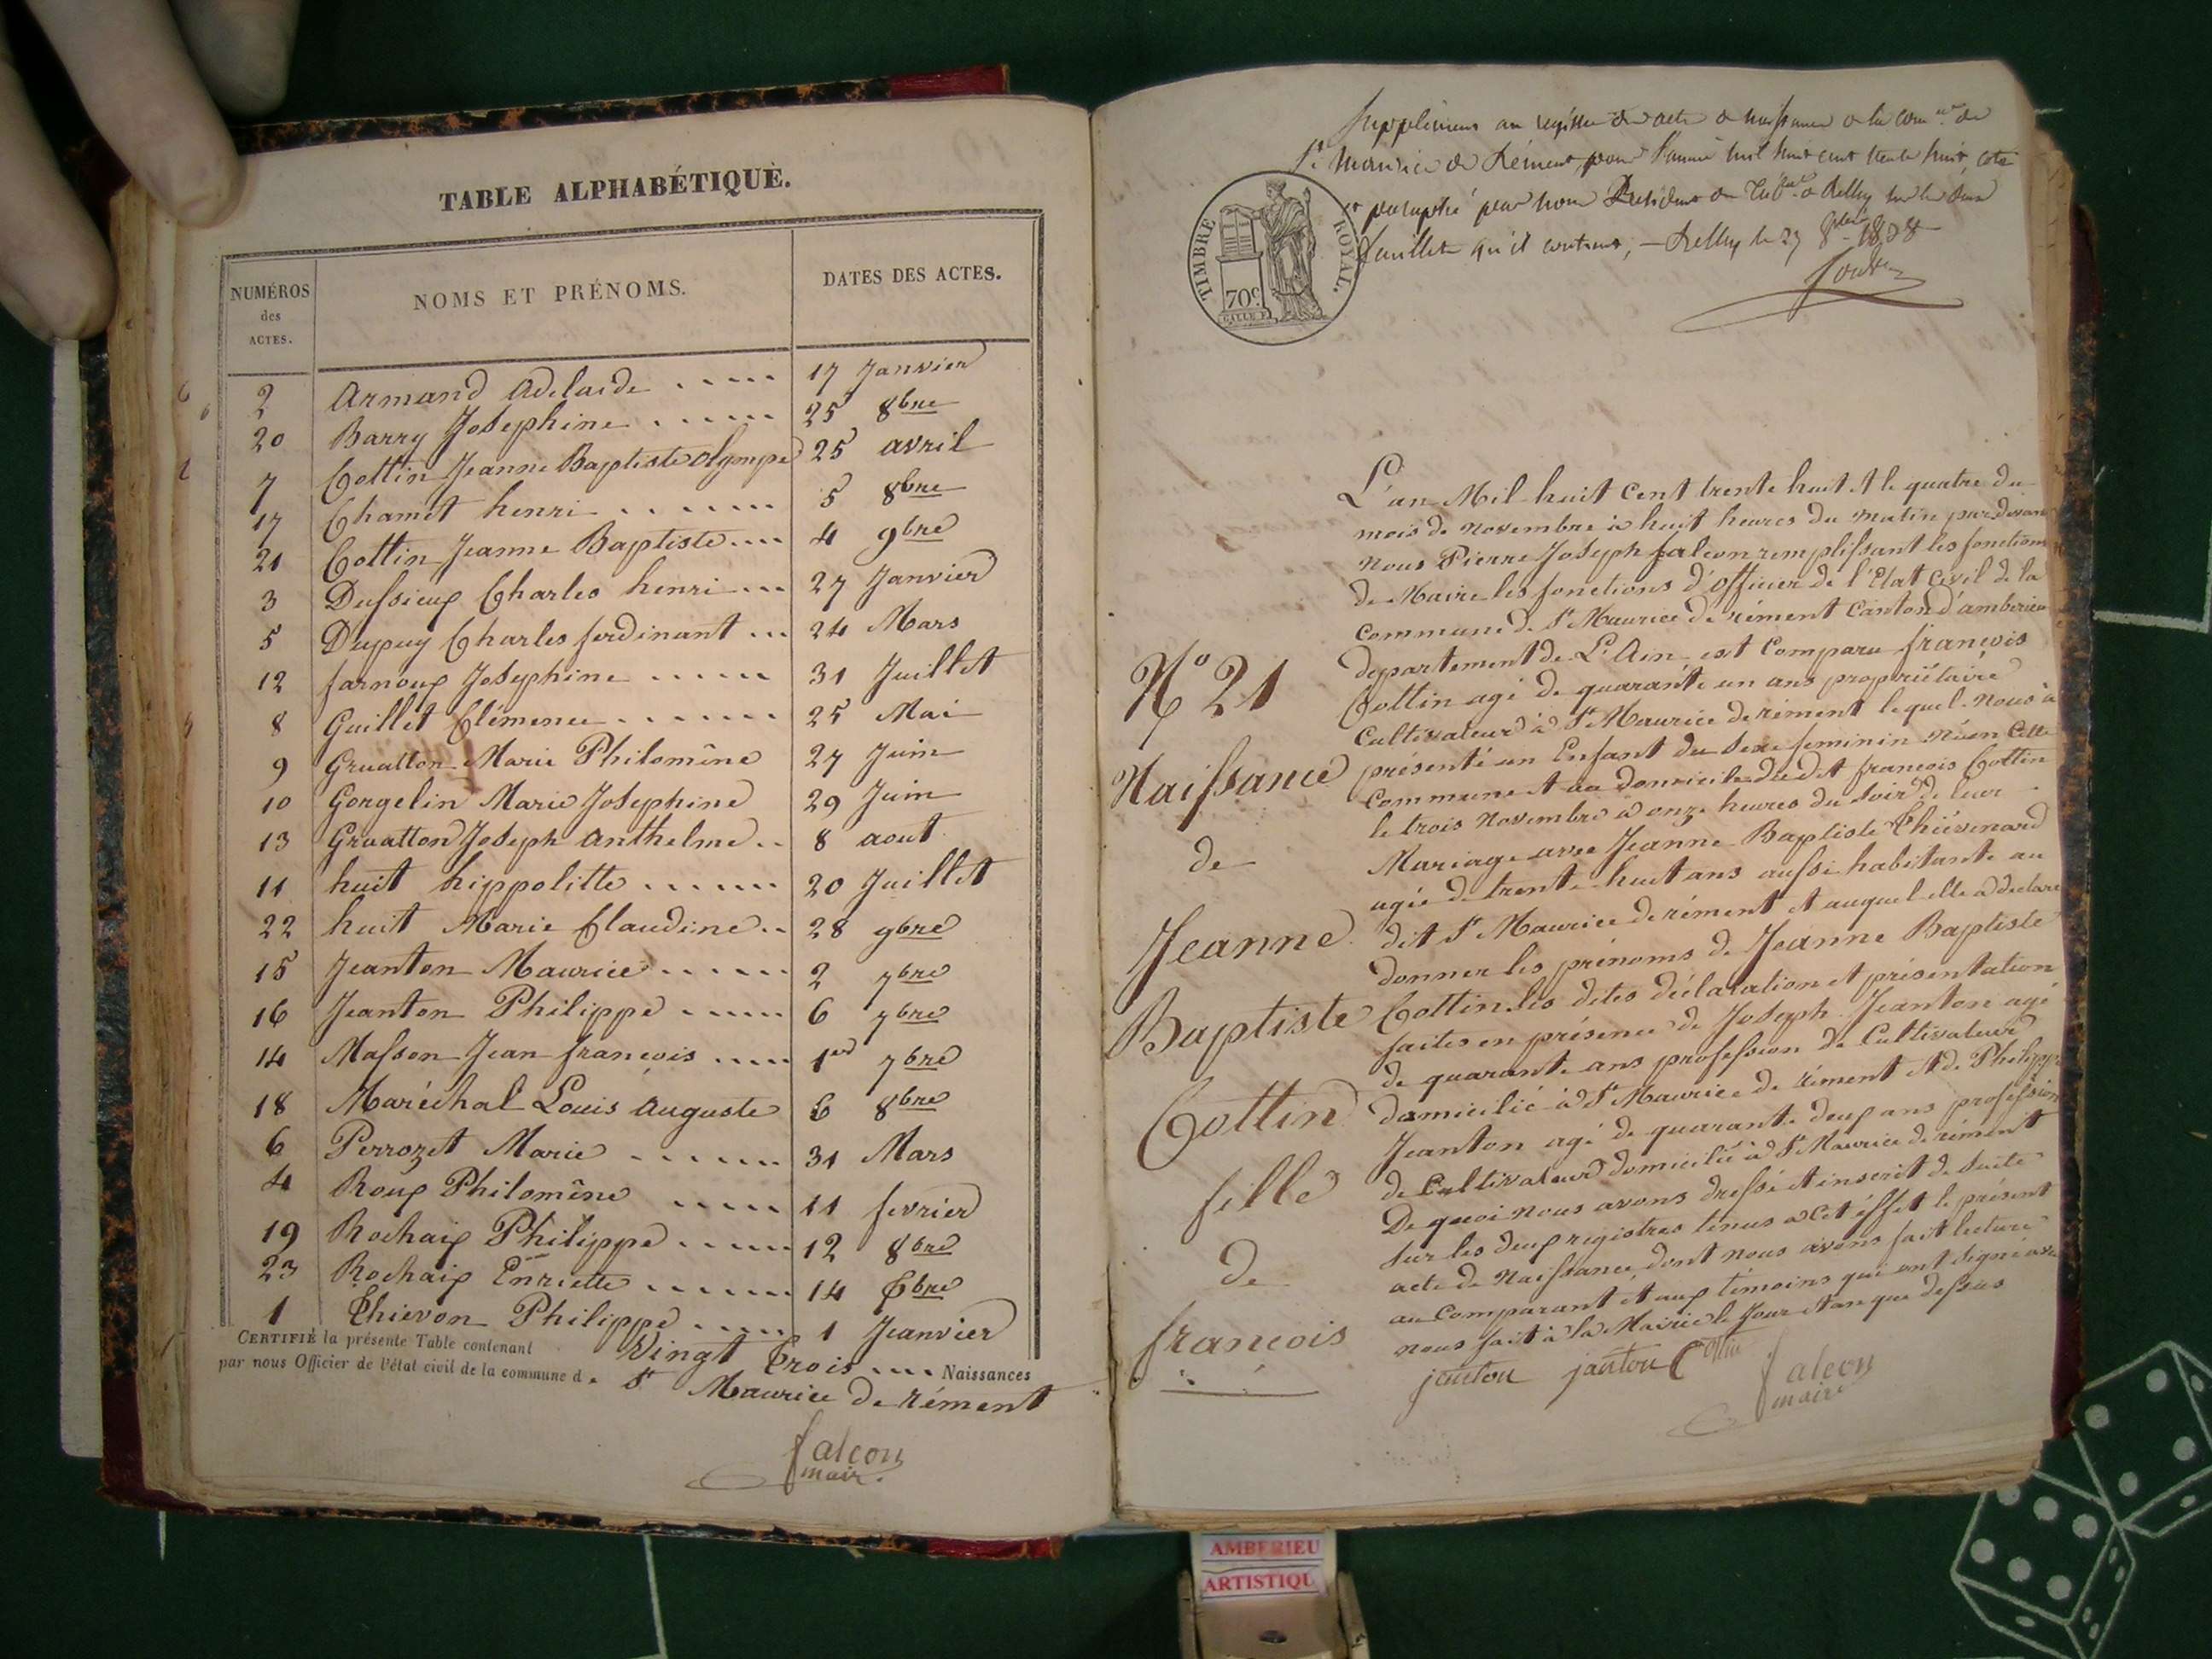 TABLE ALPHABÉTIQUE.
NUMÉROS des ACTES. NOMS ET PRÉNOMS. DATES DES ACTES.
2 Armand Adelaide ..... 17 Janvier
20 Barry Josephine ...... 25 8bre
7 Cottin Jeanne Baptiste Olympe 25 avril
17 Chamet henri ....... 5 8bre
21 Cottin Jeanne Baptiste .... 4 9bre
3 Dussieux Charles henri ... 27 Janvier
5 Dupuy Charles ferdinant ... 24 Mars
12 farnoux Josephine ...... 31 Juillet
8 Guillet Clémence ....... 25 Mai
9 Gruatton Marie Philomîne 27 Juin
10 Gorgelin Marie Josephine 29 Juin
13 Gruatton Joseph Anthelme .. 8 aout
11 huit hippolitte ...... 20 Juillet
22 huit Marie Claudine .. 28 9bre
15 Jeanton Maurice ...... 2 7bre
16 Jeanton Philippe ..... 6 7bre
14 Masson Jean francois .... 1er 7bre
18 Maréchal Louis Auguste 6 8bre
6 Perrozet Marie ....... 31 Mars
4 Roux Philomîne ..... 11 fevrier
19 Rochaix Philippe ..... 12 8bre
23 Rochaix Enriette ...... 14 Xbre
1 Thievon Philippe ..... 1 Jeanvier
CERTIFIÉ la présente Table contenant Vingt Trois .... Naissances
par nous Officier de l'état civil de la commune d. St Maurice de rément
falcon
mair.
Supplément au registre des actes de naissance de la comne de
St Maurice de Rément, pour l'année mil huit cent trente huit, coté
et paraphé par nous Président du Tribal de Belley sur les deux
feuillets qu'il contient, — Belley le 27 8bre 1838
TIMBRE ROYAL.
70c
N° 21
Naissance
de
Jeanne
Baptiste
Cottin
fille
de
francois
L'an Mil huit Cent trente huit et le quatre du
mois de novembre à huit heures du matin pardevant
nous Pierre Joseph falcon remplissant les fonctions
de Maire les fonctions d'officier de l'Etat Civil de la
Commune de St Maurice de rément Canton d'amberieu
departement de L'Ain est Comparu françois
Cottin agé de quarante un ans propriétaire
Cultivateur à St Maurice de rément lequel nous à
présenté un Enfant du sexe feminin né en Cette
Commune et au domicile dudit francois Cottin
le trois Novembre à onze heures du soir de leur
Mariage avec Jeanne Baptiste Thiévenard
agée de trente huit ans aussi habitante au
dit St Maurice de rément et auquel elle a declaré
donner les prénoms de Jeanne Baptiste
Cottin. les dites déclaration et présentation
faites en présence de Joseph Jeanton agé
de quarante ans profession de Cultivateur
domicilié à St Maurice de rément et de Philippe
Jeanton agé de quarante deux ans profession
de Cultivateur domicilié à St Maurice de rément
De quoi nous avons dressé et inscrit de suite
sur les deux registres tenus à cet éffet le présent
acte de Naissance dont nous avons fait lecture
au Comparant et aux témoins qui ont signé avec
nous fait à la Mairie le Jour et an que dessus
janton janton Cottin falcon
maire
AMBERIEU
ARTISTIQU